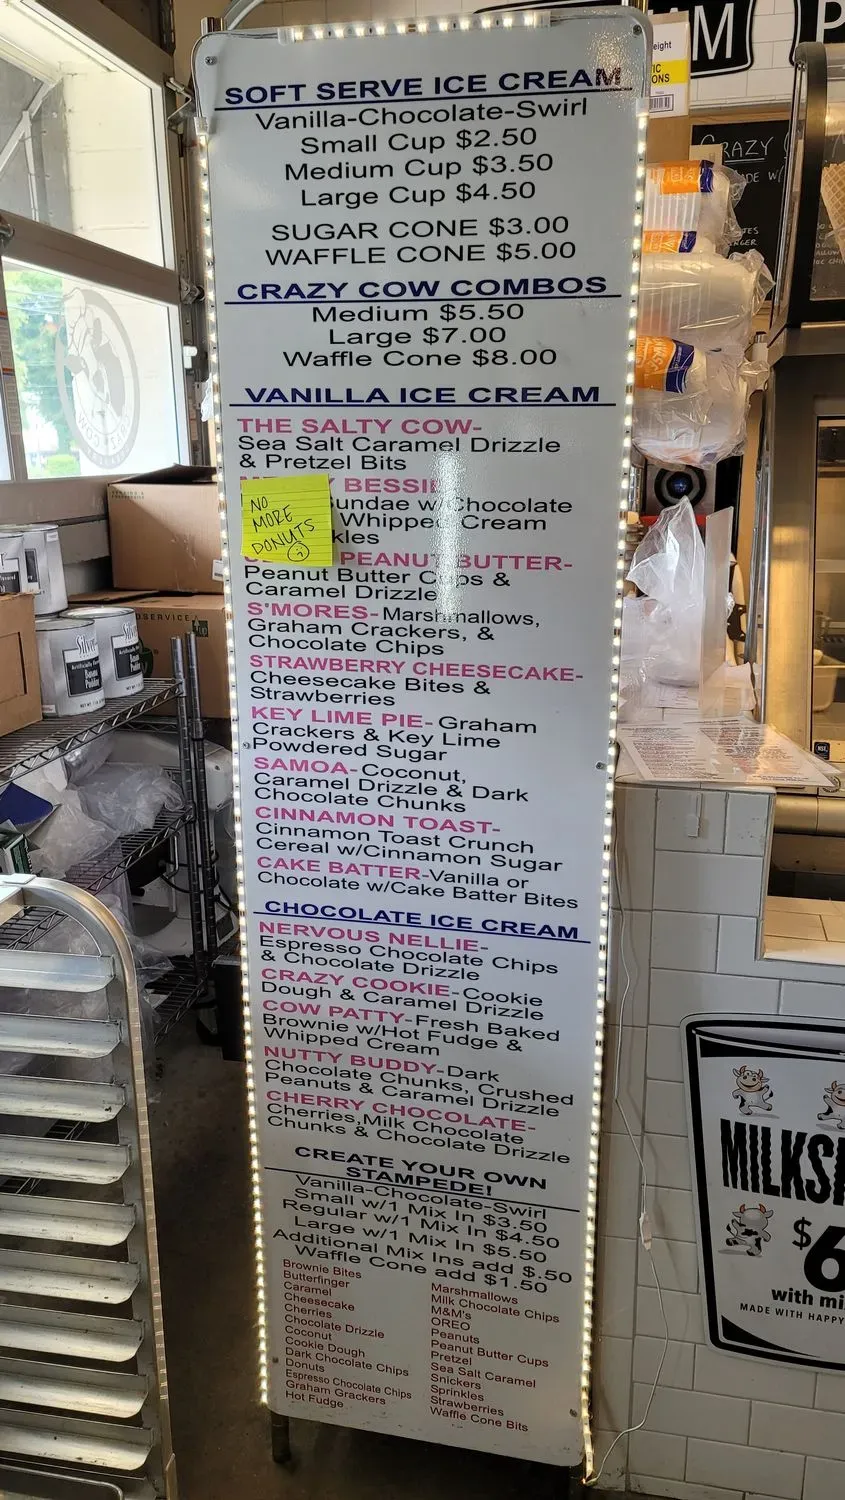 SOFT SERVE ICE CREAM
Vanilla-Chocolate-Swirl
Small Cup $2.50
Medium Cup $3.50
Large Cup $4.50
SUGAR CONE $3.00
WAFFLE CONE $5.00
CRAZY COW COMBOS
Medium $5.50
Large $7.00
Waffle Cone $8.00
VANILLA ICE CREAM
THE SALTY COW-
Sea Salt Caramel Drizzle
& Pretzel Bits
BESSIE
Sundae w/Chocolate
Whipped Cream
NO
MORE
DONUTS
PEANUT BUTTER-
Peanut Butter Cups &
Caramel Drizzle
S'MORES-Marshmallows,
Graham Crackers, &
Chocolate Chips
STRAWBERRY CHEESECAKE-
Cheesecake Bites &
Strawberries
KEY LIME PIE-Graham
Crackers & Key Lime
Powdered Sugar
SAMOA-Coconut,
Caramel Drizzle & Dark
Chocolate Chunks
CINNAMON TOAST-
Cinnamon Toast Crunch
Cereal w/Cinnamon Sugar
CAKE BATTER-Vanilla or
Chocolate w/Cake Batter Bites
CHOCOLATE ICE CREAM
NERVOUS NELLIE-
Espresso Chocolate Chips
& Chocolate Drizzle
CRAZY COOKIE-Cookie
Dough & Caramel Drizzle
COW PATTY-Fresh Baked
Brownie w/Hot Fudge &
Whipped Cream
NUTTY BUDDY-Dark
Chocolate Chunks, Crushed
Peanuts & Caramel Drizzle
CHERRY CHOCOLATE-
Cherries,Milk Chocolate
Chunks & Chocolate Drizzle
CREATE YOUR OWN
STAMPEDE!
Vanilla-Chocolate-Swirl
Small w/1 Mix In $3.50
Regular w/1 Mix In $4.50
Large w/1 Mix In $5.50
Additional Mix Ins add $.50
Waffle Cone add $1.50
Brownie Bites
Butterfinger
Caramel
Cheesecake
Cherries
Chocolate Drizzle
Coconut
Cookie Dough
Dark Chocolate Chips
Donuts
Espresso Chocolate Chips
Graham Grackers
Hot Fudge
Marshmallows
Milk Chocolate Chips
M&M's
OREO
Peanuts
Peanut Butter Cups
Pretzel
Sea Salt Caramel
Snickers
Sprinkles
Strawberries
Waffle Cone Bits
MILKS
$6
with mi
MADE WITH HAPPY